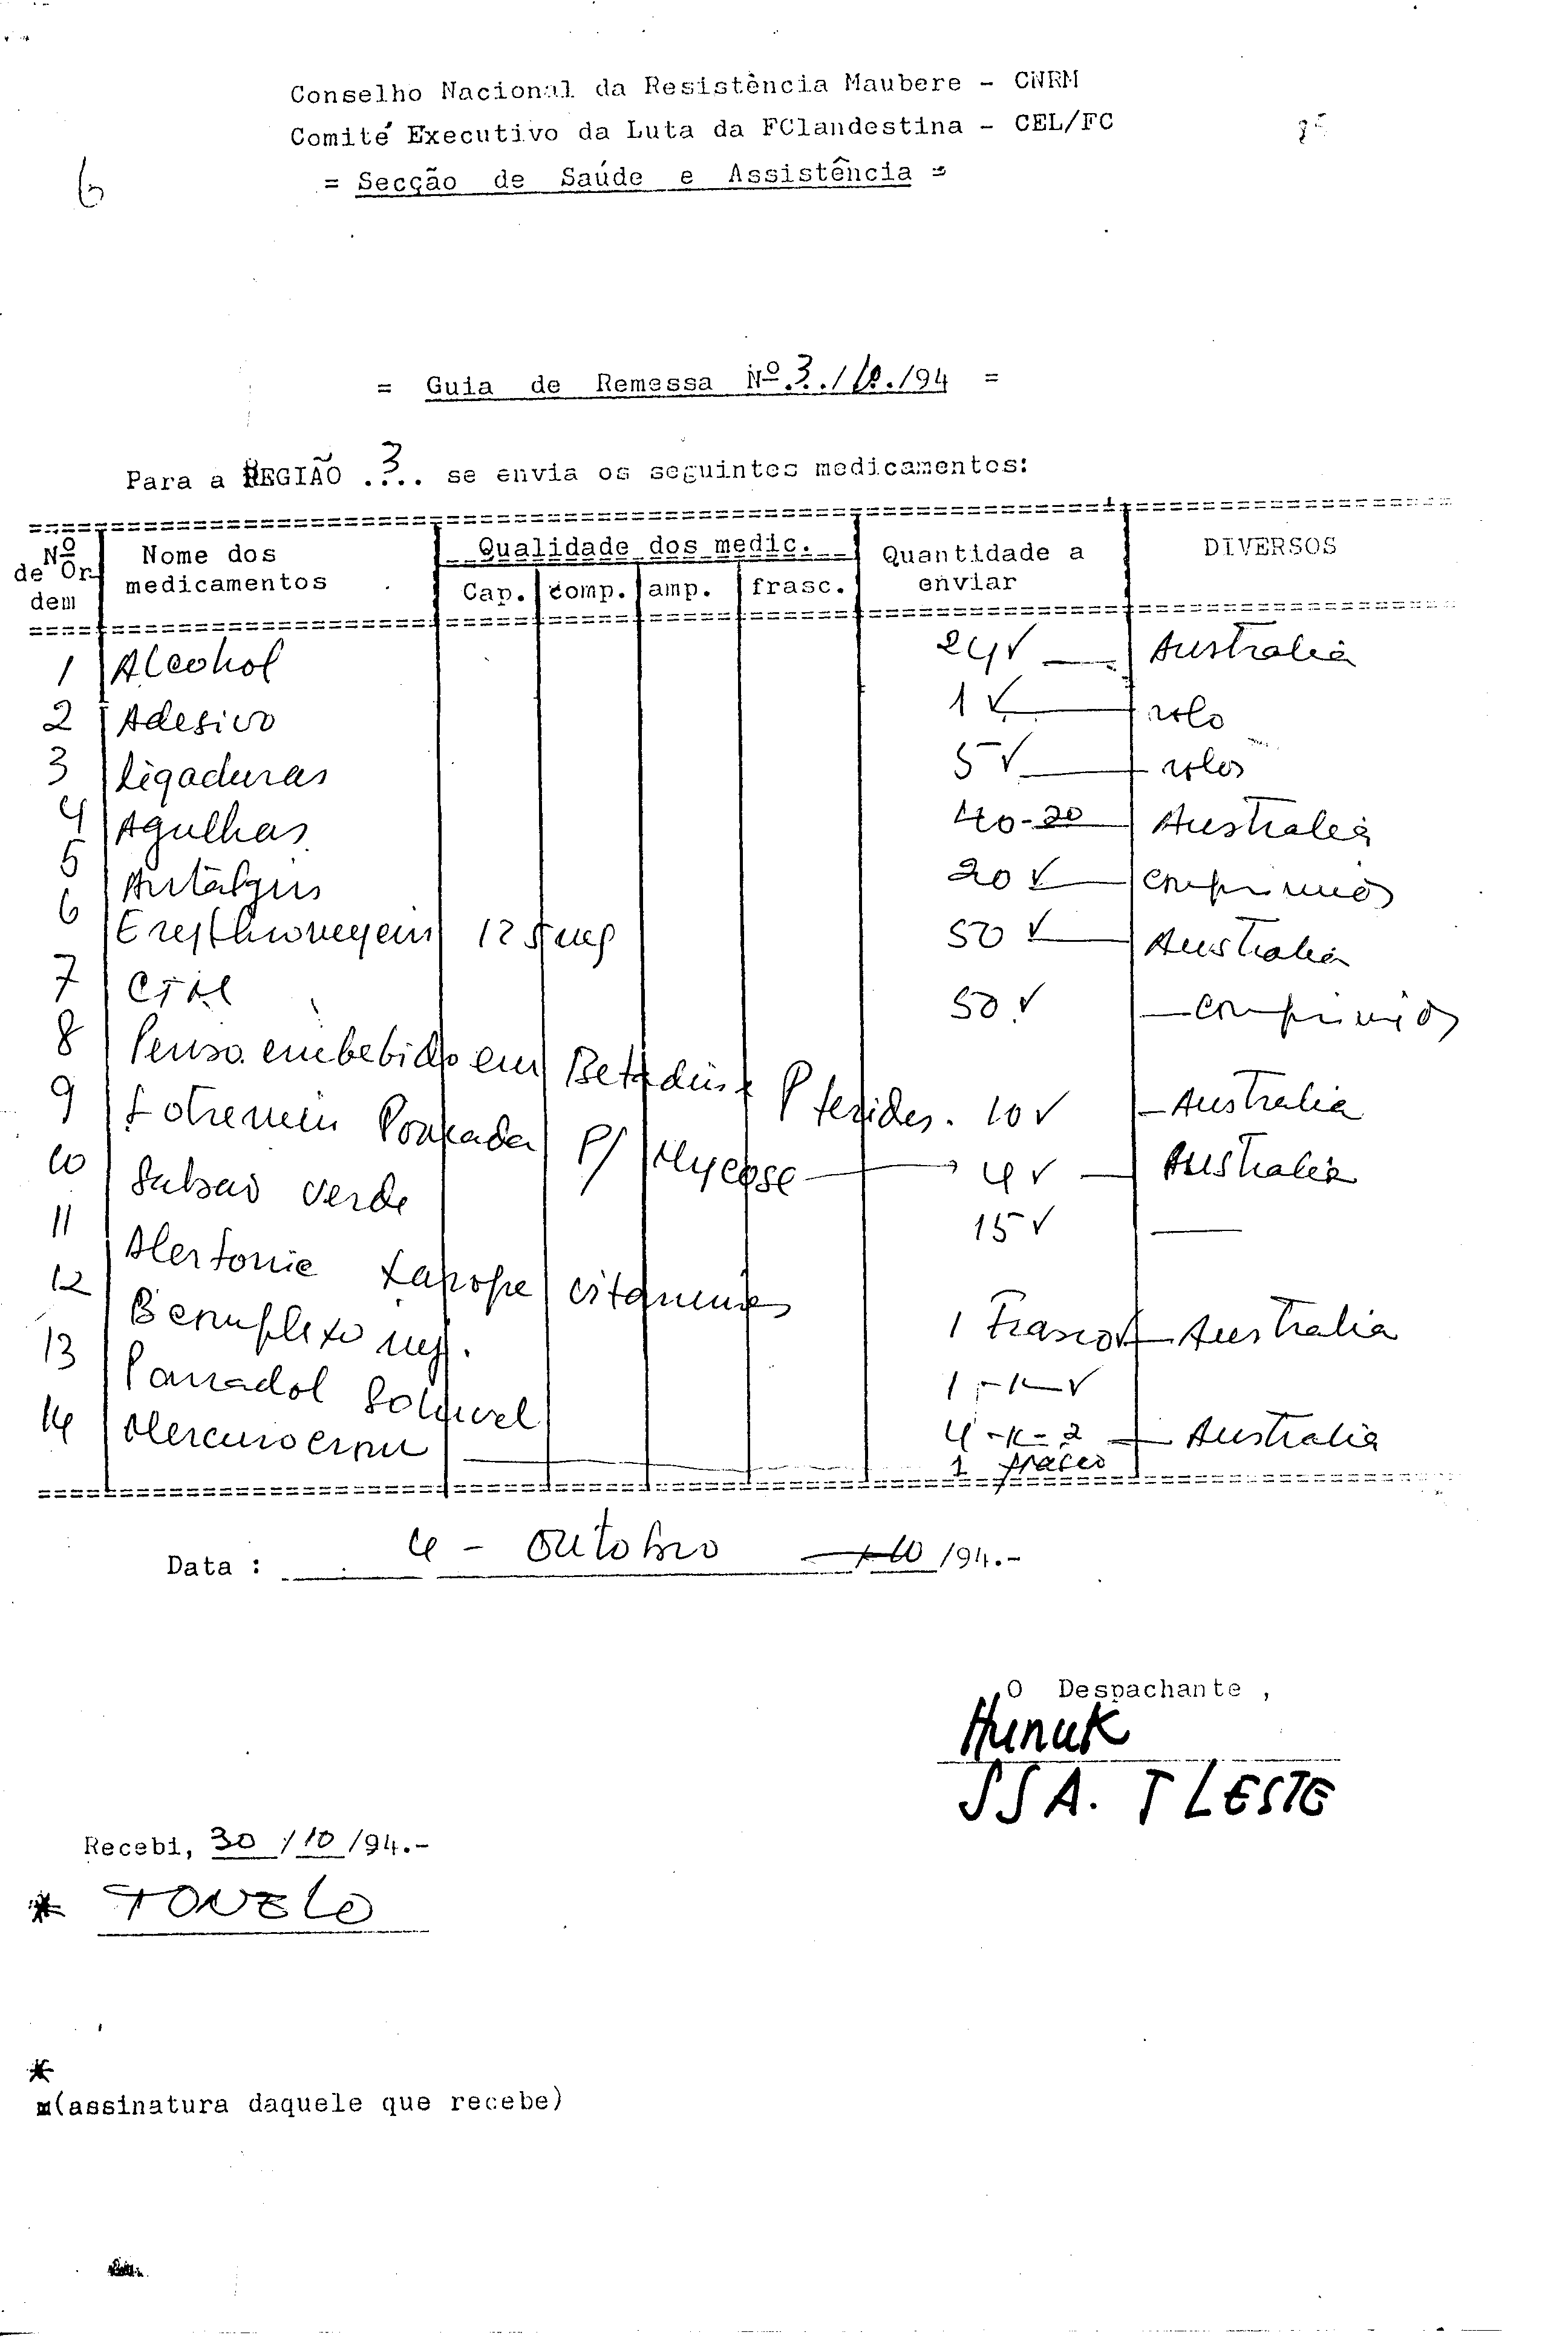 Conselho Nacional da Resistência Maubere - CNRM
Comité Executivo da Luta da FClandestina - CEL/FC
6
= Secção de Saúde e Assistência =
= Guia de Remessa Nº.3./10./94 =
Para a REGIÃO .3.. se envia os seguintes medicamentos:
Nº de Or- dem Nome dos medicamentos Qualidade dos medic. Quantidade a enviar DIVERSOS
Cap. comp. amp. frasc.
1 Alcohol 24 ✓ — Australia
2 Adesivo 1 ✓ — rolo
3 ligaduras 5 ✓ — rolos
4 Agulhas 40-20 Australia
5 Antalgin 20 ✓ — comprimidos
6 125mg 50 ✓ — Australia
7 CTM 50 ✓ — comprimidos
8 Penso embebido em Betadine P feridas. 10 ✓ — Australia
9 Pomada P/ Mycose → 4 ✓ — Australia
10 verde 15 ✓ —
11 Xarope vitaminas 1 Frasco ✓ — Australia
12 Bcomplexo 1 -"- ✓
13 Panadol Soluvel 4 -"- 2 — Australia
14 1 frasco
Data : 4 - Outubro 10 /94.-
O Despachante ,
Hunuk
SSA. T LESTE
Recebi, 30 / 10 /94.-
* TONELO
*
(assinatura daquele que recebe)